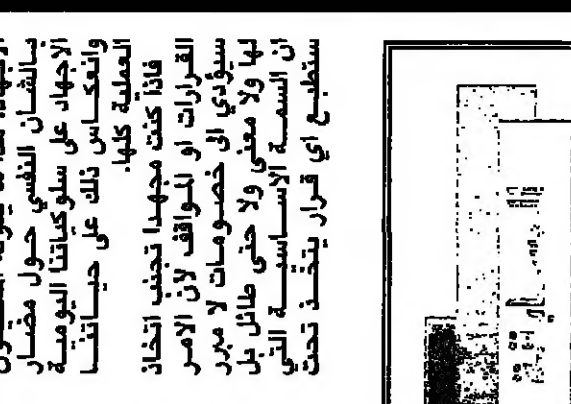 بالشأن النفسي حول مضار
الاجهاد على سلوكياتنا اليومية
وانعكاس ذلك على حياتنا
العملية كلها.
فاذا كنت مجهدا تجنب اتخاذ
القرارات او المواقف لأن الامر
سيؤدي الى خصومات لا مبرر
لها ولا معنى ولا حتى طائل بل
ان السمة الاساسية التي
ستطبع اي قرار يتخذ تحت